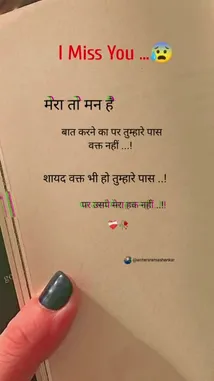 I Miss You ...😰
मेरा तो मन है
बात करने का पर तुम्हारे पास
वक्त नहीं ...!
शायद वक्त भी हो तुम्हारे पास ..!
पर उसमे मेरा हक नहीं ..!!
❤️‍🩹🥀